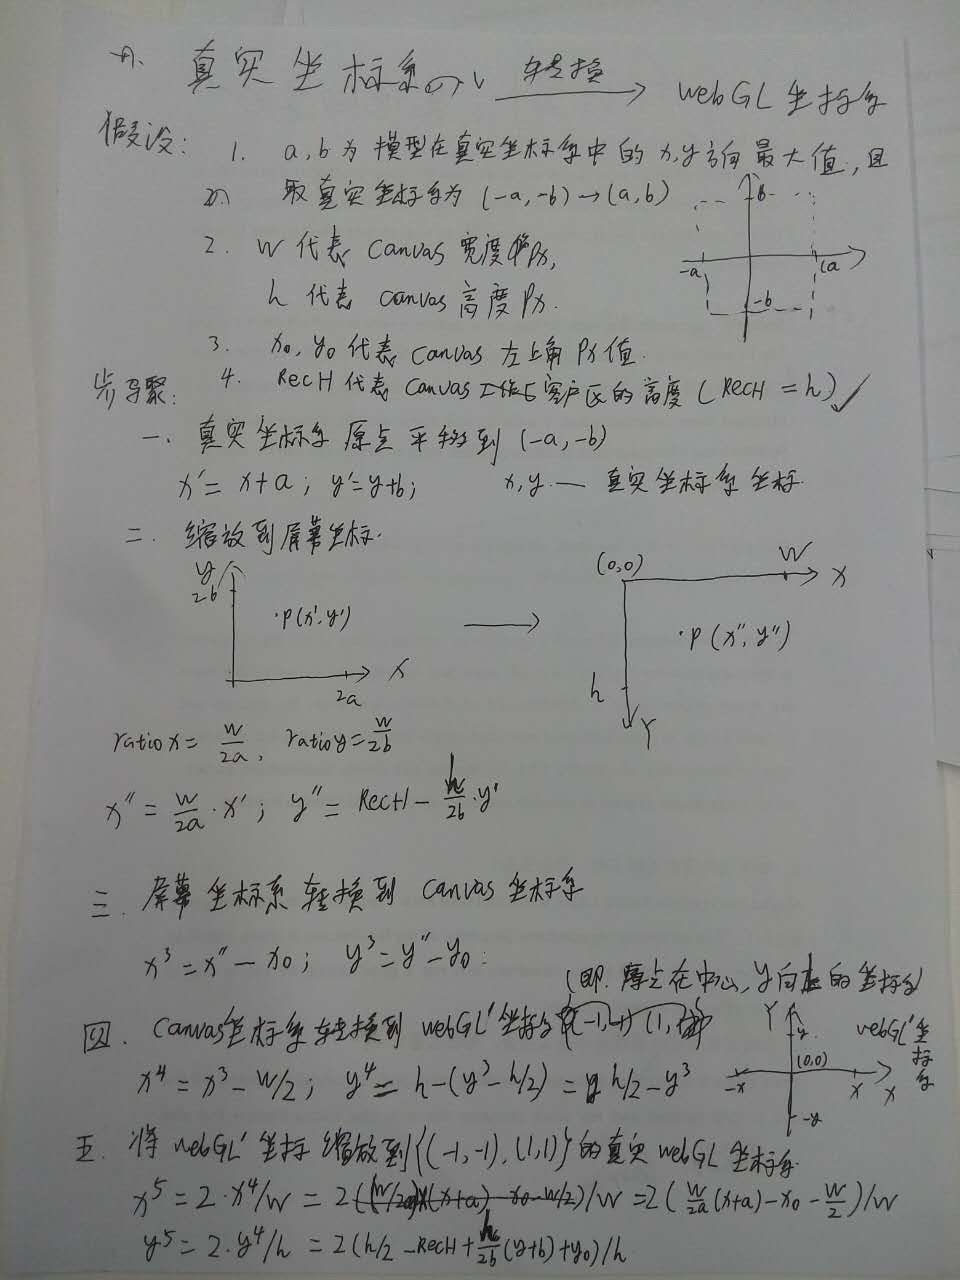 真实坐标系 转换 → webGL坐标系
假设:
1. a,b为模型在真实坐标系中的x,y方向最大值,且
取真实坐标系为(-a,-b)→(a,b)
b
-a
a
-b
2. w代表canvas宽度px,
h代表canvas高度px.
3. x₀,y₀代表canvas左上角px值.
4. RecH代表canvas 客户区的高度(RecH=h)✓
步骤:
一. 真实坐标系原点平移到(-a,-b)
x'=x+a; y'=y+b; x,y — 真实坐标系坐标.
二. 缩放到屏幕坐标.
y
2b
·P(x',y')
x
2a
→
(0,0)
W
X
·P(x'',y'')
h
Y
ratiox=w/2a, ratioy=w/2b
x''=w/2a·x'; y''=RecH-h/2b·y'
三. 屏幕坐标系转换到canvas坐标系
x³=x''-x₀; y³=y''-y₀.
(即.原点在中心,y向上的坐标系)
四. canvas坐标系转换到webGL'坐标系
x⁴=x³-w/2; y⁴=h-(y³-h/2)=h/2-y³
Y
y
(0,0)
-x
x
X
-y
webGL'坐标系
五. 将webGL'坐标缩放到{(-1,-1),(1,1)}的真实webGL坐标系
x⁵=2·x⁴/w=2((w/2a)(x+a)-x₀-w/2)/w=2(w/2a(x+a)-x₀-w/2)/w
y⁵=2·y⁴/h=2(h/2-RecH+h/2b(y+b)+y₀)/h